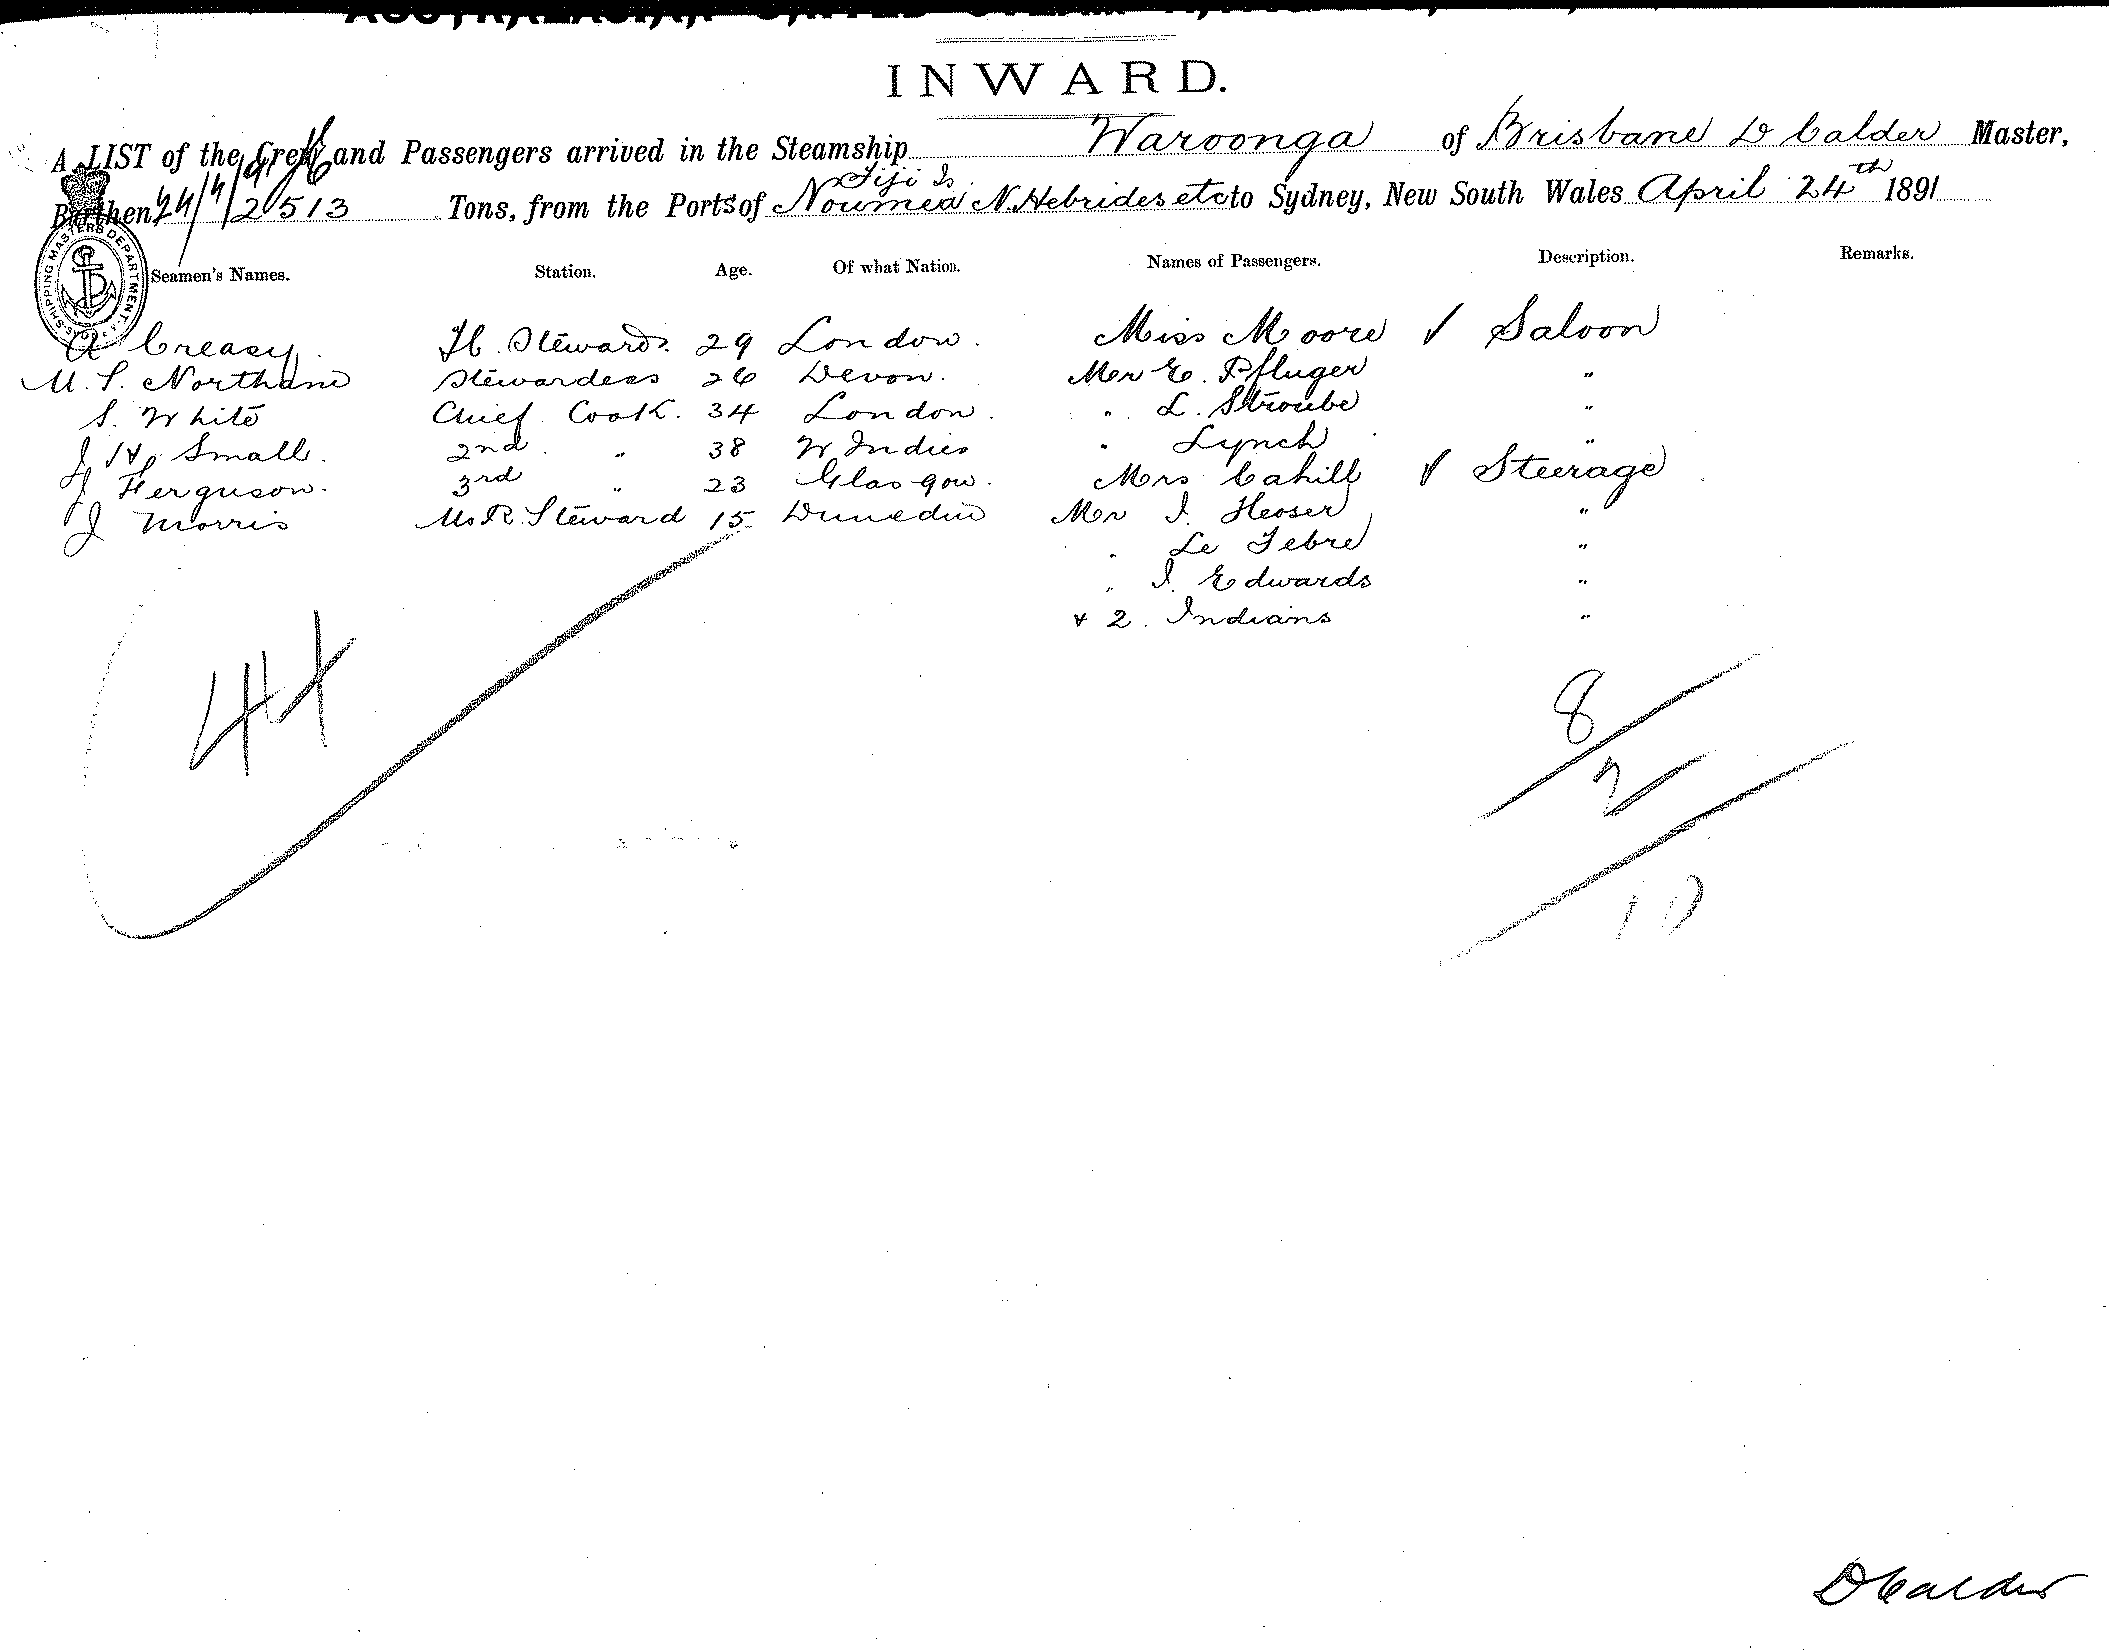 INWARD.
A LIST of the Crew and Passengers arrived in the Steamship Waroonga of Brisbane D Calder Master,
Fiji Is
Burthen 2513 Tons, from the Ports of Noumea N. Hebrides etc to Sydney, New South Wales April 24th 1891
24/4/91
SHIPPING MASTERS DEPARTMENT
Seamen's Names. Station. Age. Of what Nation. Names of Passengers. Description. Remarks.
A Creasy. Steward 29 London. Miss Moore Saloon
M. S. Northam Stewardess 26 Devon. Mr E. Pfluger "
S. White Chief Cook. 34 London. " L. Stroube "
J H. Small. 2nd " 38 W Indies " Lynch "
J Ferguson. 3rd " 23 Glasgow. Mrs Cahill Steerage
J Morris Ms R. Steward 15 Dunedin Mr J. Heoser "
" Le Febre "
" J. Edwards "
+ 2. Indians "
44
8
2
10
D Calder